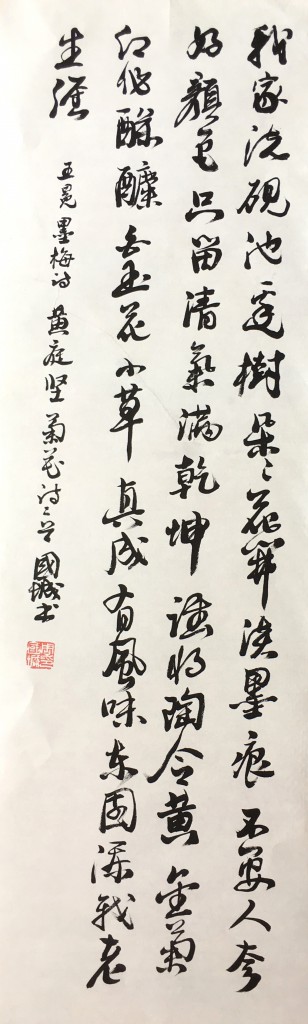 我家洗硯池邊樹朵々花開淡墨痕不要人夸
好顏色只留清氣滿乾坤誰將陶令黃金菊
幻作酴醾白玉花小草真成有風味東園添我老
生涯
王冕墨梅诗 黄庭坚菊花诗二首 國城书